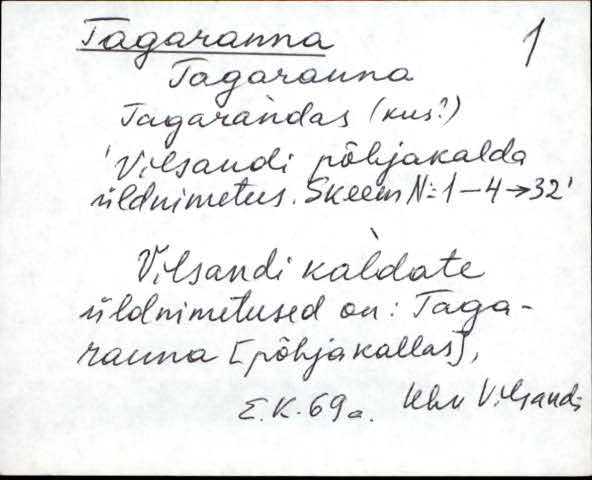 Tagaranna
1
Tagaranna
Tagarandas (kus?)
'Vilsandi põhjakalda
üldnimetus. Skeem N: 1-4→32'
Vilsandi kàldate
üldnimetused on: Taga-
ranna [põhjakallas],
E.K. 69 a. Khn Vilsandi